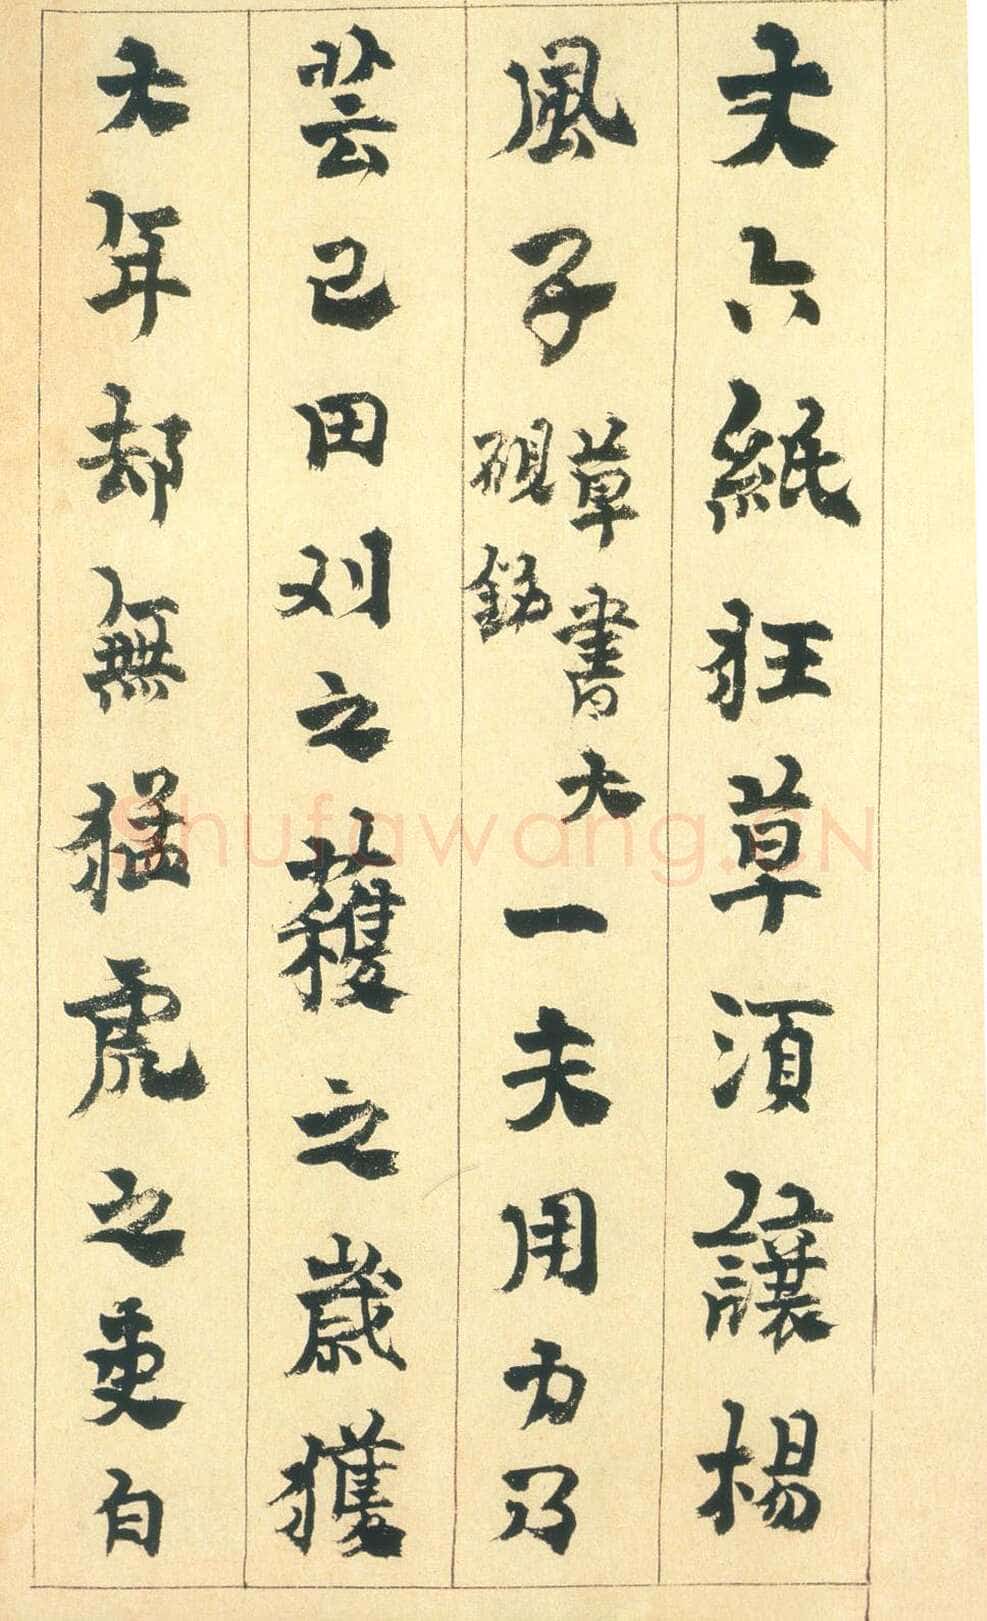 丈六紙狂草須讓楊
風子草書大硯銘一夫用力乃
芸己田刈之穫之歲獲
大年却無猛虎之吏白
Shufawang.CN